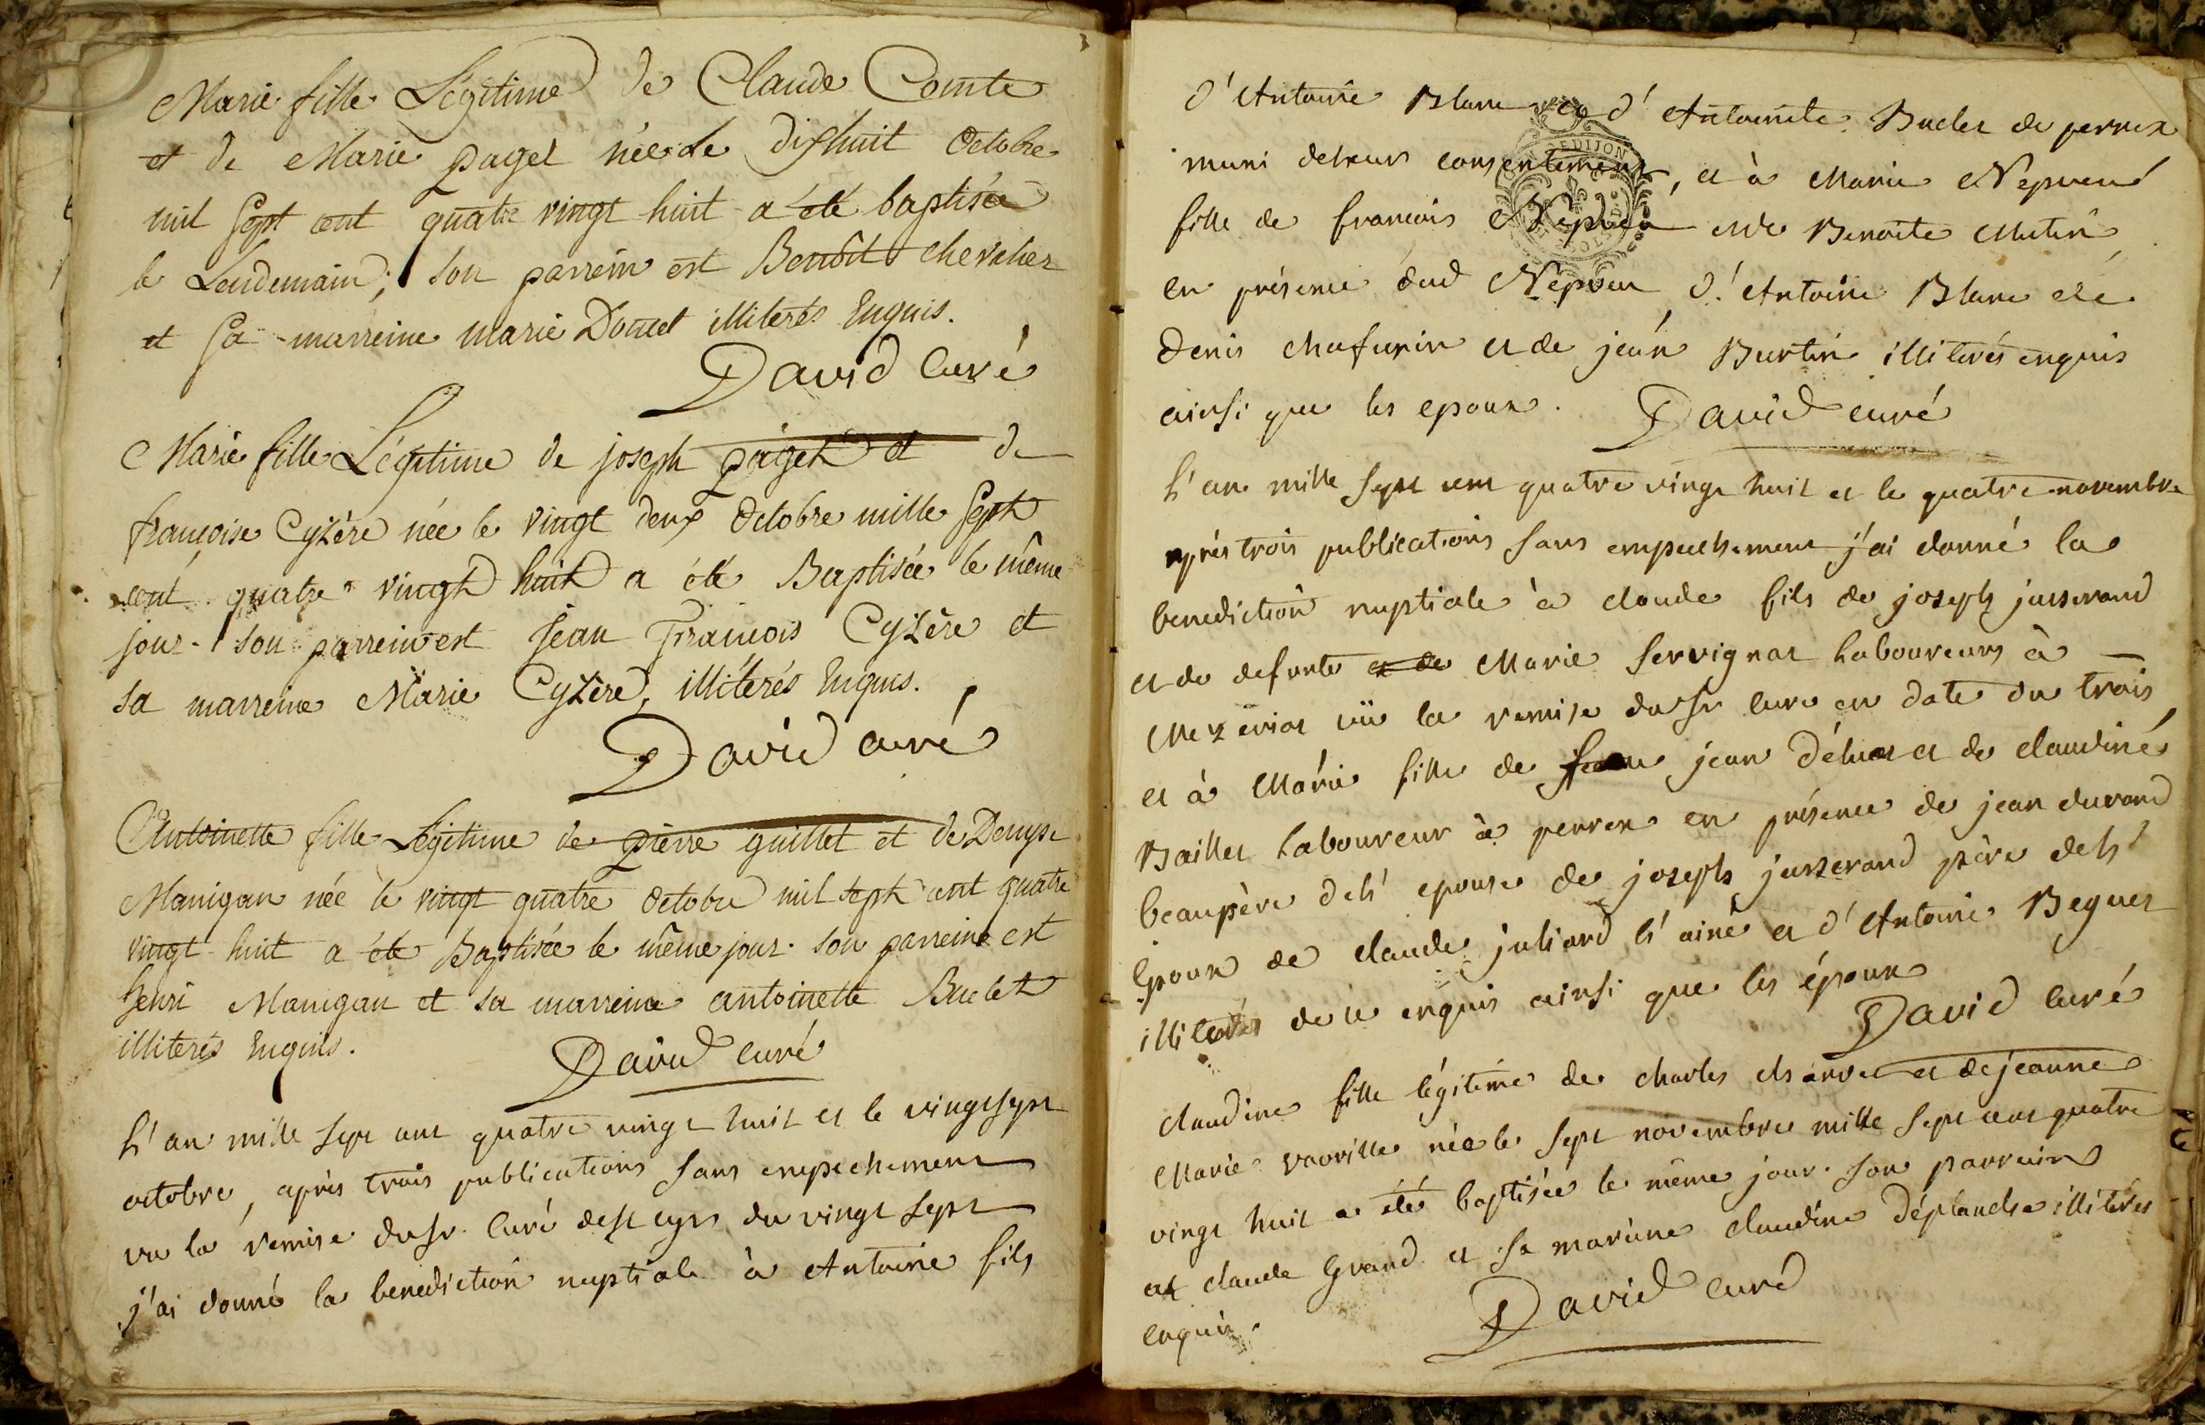 Marie fille Légitime de Claude Comte
et de Marie paget née le dixhuit Octobre
mil sept cent quatre vingt huit a été baptisée
le Lendemain; son parrein est Benoît chevalier
et sa marreine marie Donnet illiterés Enquis.
David curé
Marie fille Légitime de joseph paget et de
françoise Cyzère née le vingt deux Octobre mille sept
cent quatre vingt huit a été Baptisée le même
jour. son parrein est Jean François Cyzère et
sa marreine Marie Cyzère, illiterés Enquis.
David curé
Antoinette fille Légitime de pierre guillet et de Denyse
Manigan née le vingt quatre Octobre mil sept cent quatre
vingt huit a été Baptisée le même jour. son parreine est
henri Manigan et sa marreine antoinette Buclet
illiterés Enquis.
David curé
L'an mille sept cent quatre vingt huit et le vingt sept
octobre, après trois publications sans empechement
vu la remise du sr. curé de st cyr du vingt sept
j'ai donné la benediction nuptiale à Antoine fils
d'Antoine Blanc et d'Antoinete Buclet de perrex
muni de leurs consentement, et à Marie Nepveu
fille de francois Nepveu et de Benoite Mutin
en présence dud Nepveu d'Antoine Blanc de
Denis chafurin et de jean Burtin illiterés enquis
ainsi que les epoux. David curé
L'an mille sept cent quatre vingt huit et le quatre novembre
après trois publications sans empechement j'ai donné la
benediction nuptiale à claude fils de joseph jusserand
et de defunte et de Marie servignat Laboureurs à
Mezeriat vü la remise du sr curé en date du trois
et à Marie fille de jean et de claudine
Baillet Laboureur à perrex en présence de jean durand
beaupère de l'epouse de joseph jusserand père de l'
Epoux de claude juliard l'ainé et d'Antoine Beguet
illiterés de ce enquis ainsi que les époux
David curé
claudine fille légitime de charles et de jeanne
Marie née le sept novembre mille sept cent quatre
vingt huit a été baptisée le même jour. son parrain
est claude Grand et sa maraine claudine Déplanche illiterés
enquis.
David curé